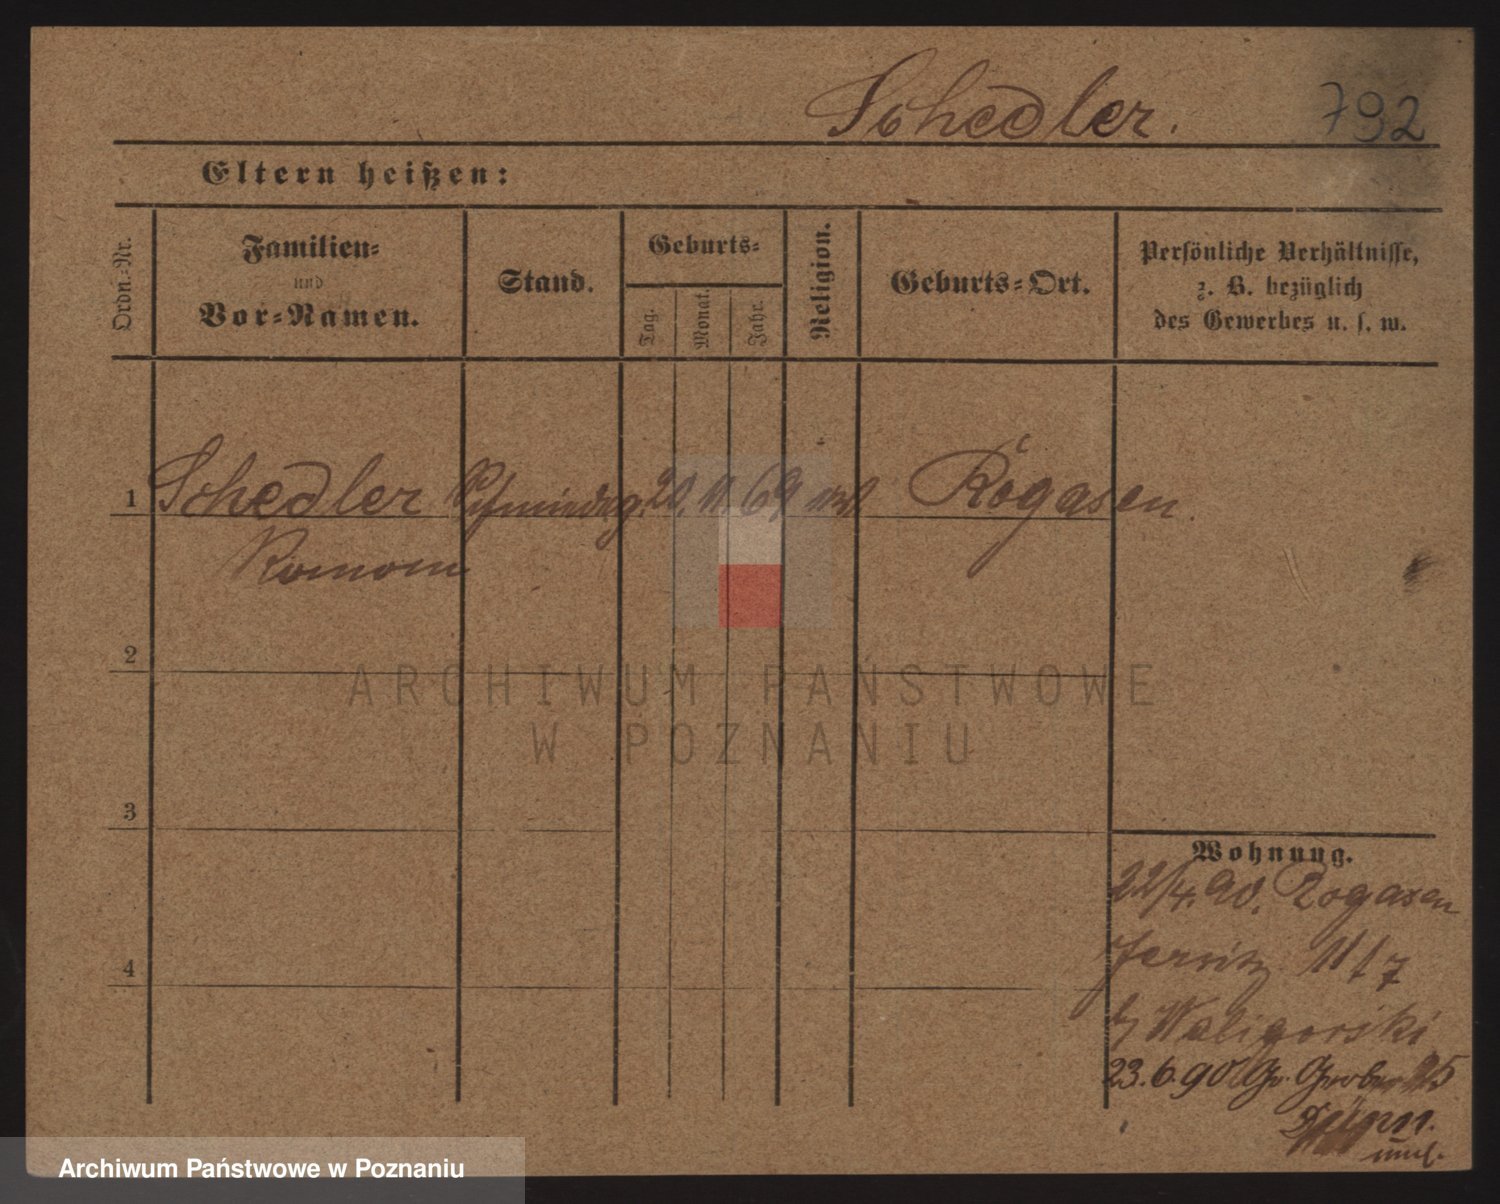 Schedler.
792
Eltern heißen:
Ordn.-Nr.
Familien-
und
Vor-Namen.
Stand.
Geburts-
Tag.
Monat.
Jahr.
Religion.
Geburts-Ort.
Persönliche Verhältnisse,
z. B. bezüglich
des Gewerbes u. s. w.
1 Schedler 11. 69 Rogasen
Roman
2
3
4
Wohnung.
22/4. 90. Rogasen
Jersitz 11/7
Waligorski
23.6.90 Gr. 25
ARCHIWUM PAŃSTWOWE
W POZNANIU
Archiwum Państwowe w Poznaniu